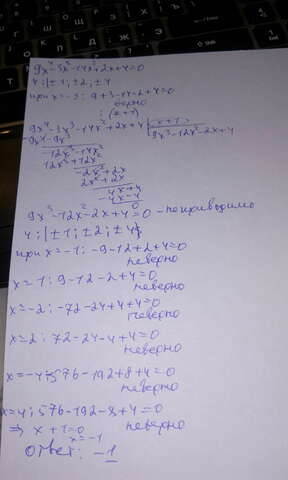 9x⁴-3x³-14x²+2x+4=0
4:|±1; ±2; ±4
при x=-1: 9+3-14-2+4=0
верно
: (x+1)
9x⁴-3x³-14x²+2x+4 | x+1
-9x⁴-9x³ 9x³-12x²-2x+4
-12x³-14x²
12x³+12x²
-2x²+2x
2x²+2x
4x+4
-4x-4
0
9x³-12x²-2x+4=0 - неприводимо
4:|±1; ±2; ±4|
при x=-1: -9-12+2+4=0
неверно
x=1: 9-12-2+4=0
неверно
x=-2: -72-24+4+4=0
неверно
x=2: 72-24-4+4=0
неверно
x=-4: -576-192+8+4=0
неверно
x=4: 576-192-8+4=0
неверно
⇒ x+1=0
x=-1
Ответ: -1